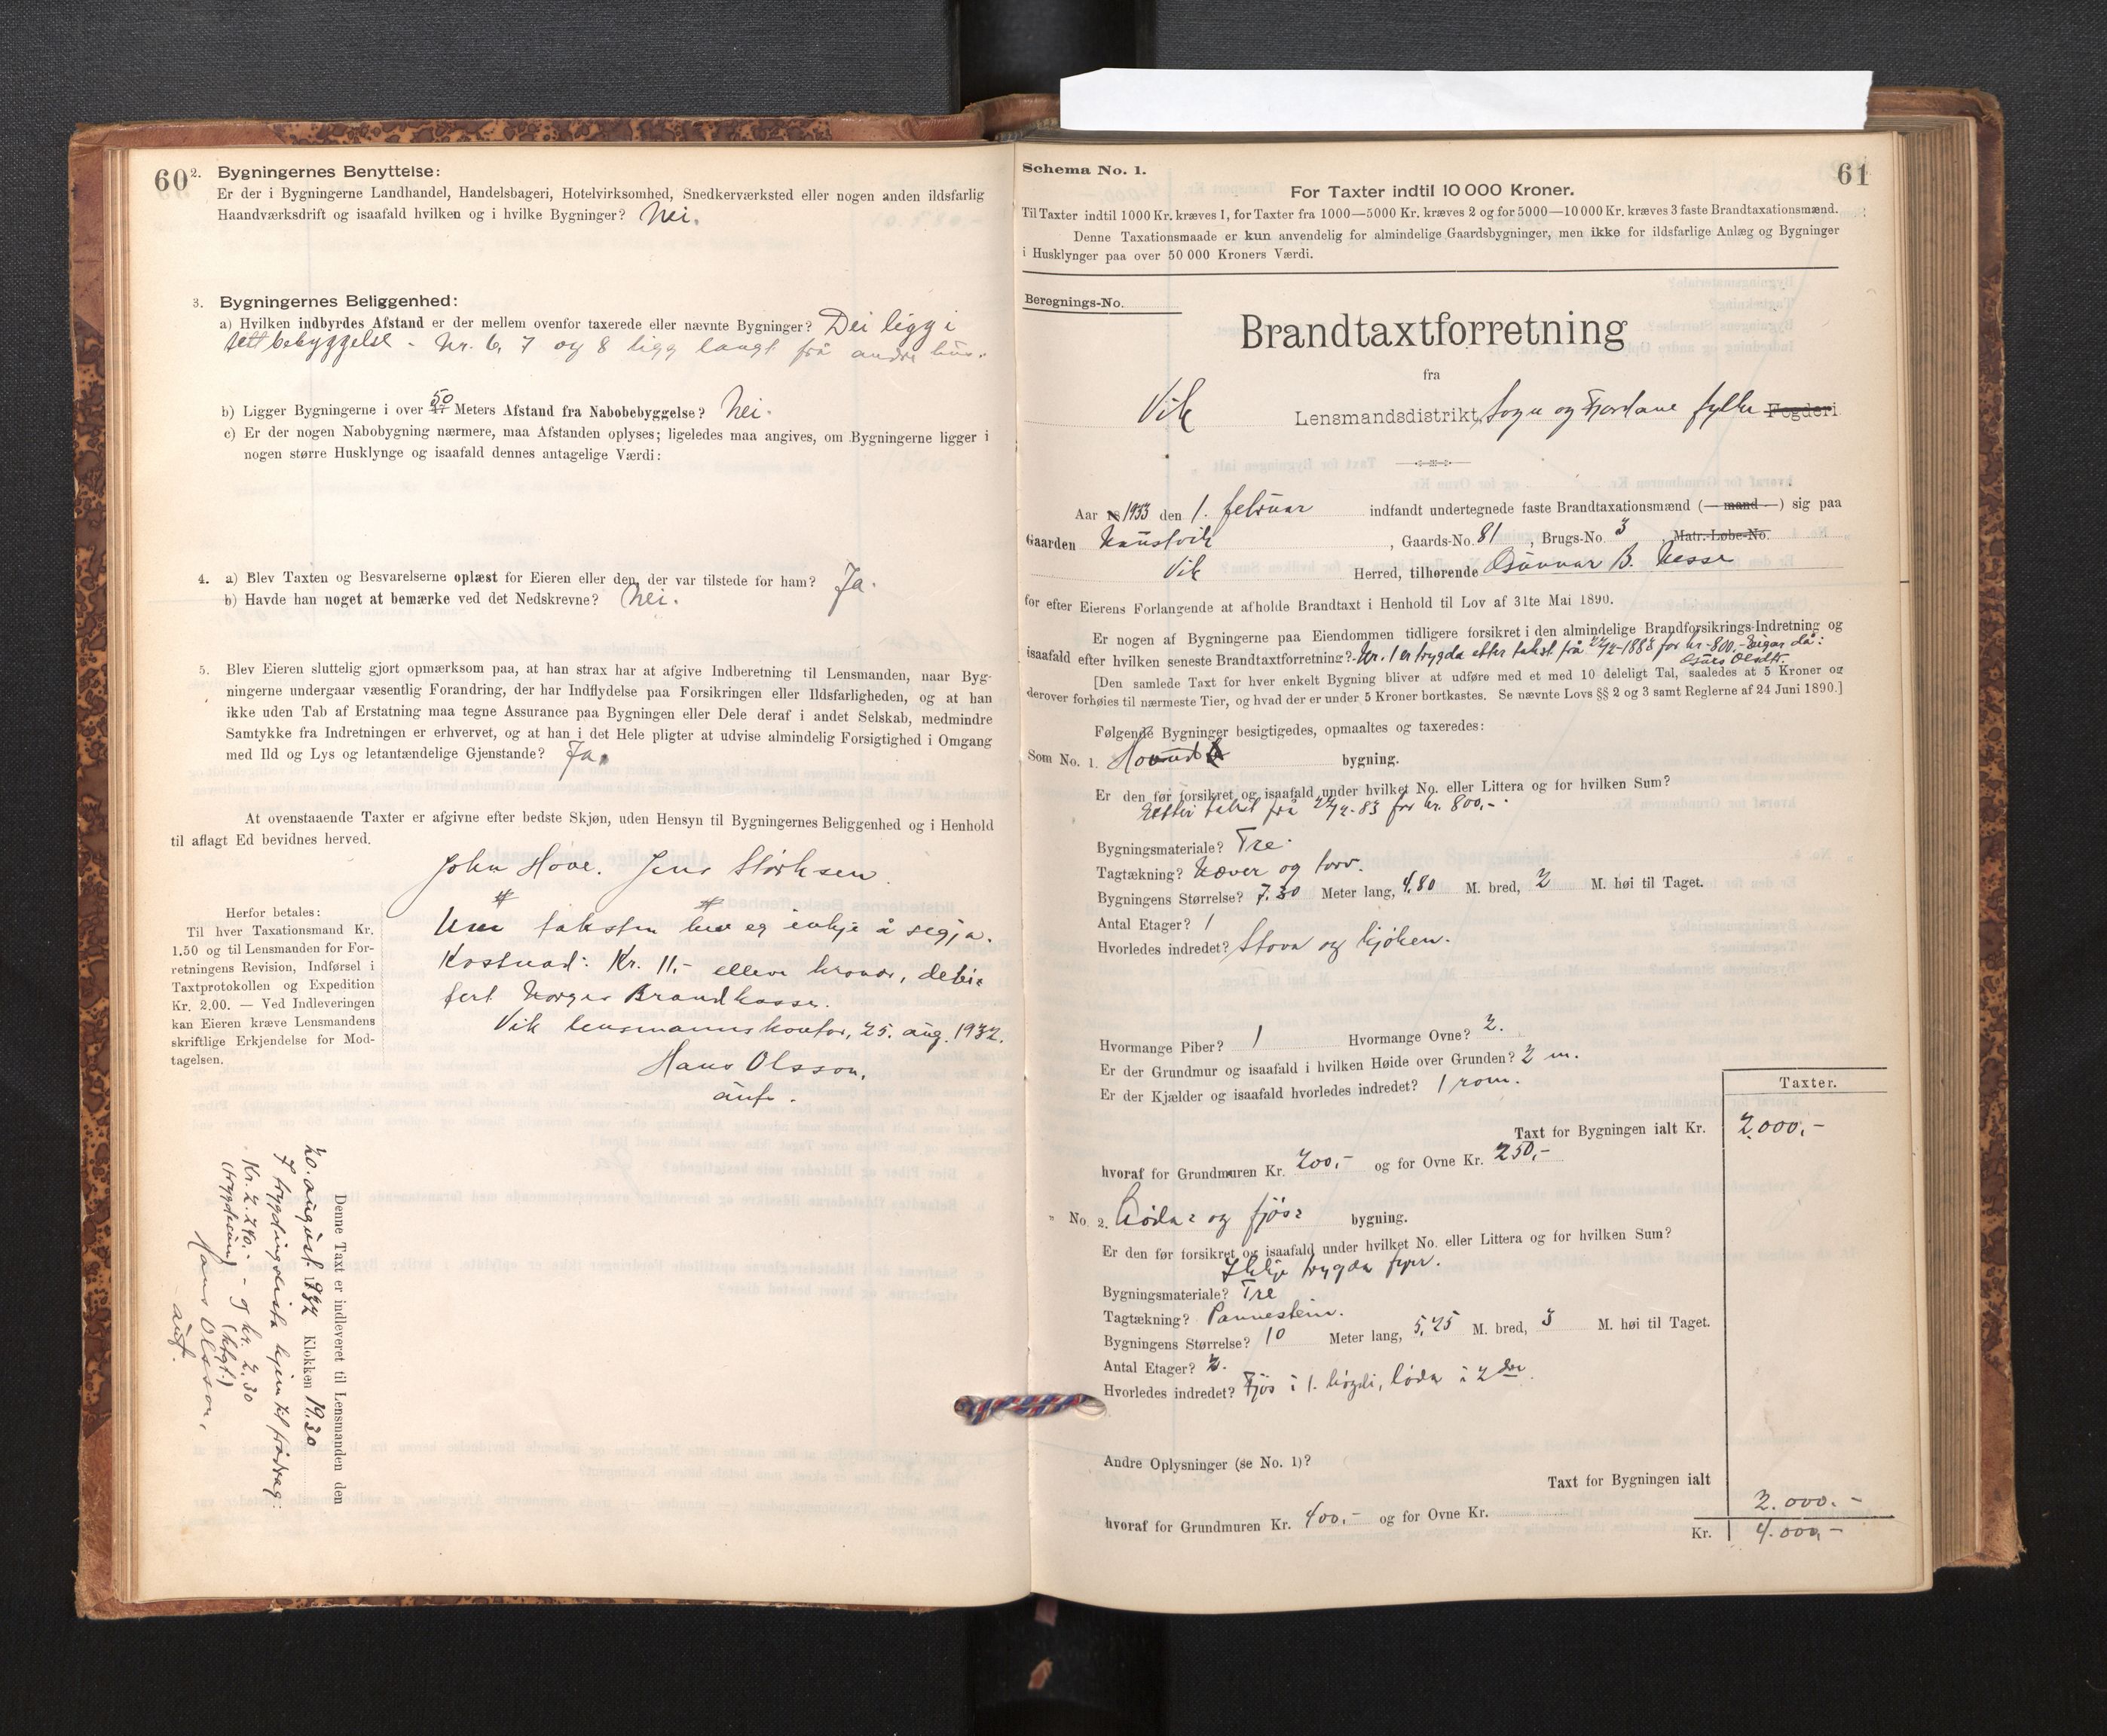 60
2. Bygningernes Benyttelse:
Er der i Bygningerne Landhandel, Handelsbageri, Hotelvirksomhed, Snedkerværksted eller nogen anden ildsfarlig
Haandværksdrift og isaafald hvilken og i hvilke Bygninger? Nei.
3. Bygningernes Beliggenhed:
a) Hvilken indbyrdes Afstand er der mellem ovenfor taxerede eller nævnte Bygninger? Dei ligg i
tett bebyggelse - Nr. 6, 7 og 8 ligg langt frå andre hus.
b) Ligger Bygningerne i over 50 Meters Afstand fra Nabobebyggelse? Nei.
c) Er der nogen Nabobygning nærmere, maa Afstanden oplyses; ligeledes maa angives, om Bygningerne ligger i
nogen større Husklynge og isaafald dennes antagelige Værdi:
4. a) Blev Taxten og Besvarelserne oplæst for Eieren eller den, der var tilstede for ham? Ja.
b) Havde han noget at bemærke ved det Nedskrevne? Nei.
5. Blev Eieren sluttelig gjort opmærksom paa, at han strax har at afgive Indberetning til Lensmanden, naar Byg-
ningerne undergaar væsentlig Forandring, der har Indflydelse paa Forsikringen eller Ildsfarligheden, og at han
ikke uden Tab af Erstatning maa tegne Assurance paa Bygningen eller Dele deraf i andet Selskab, medmindre
Samtykke fra Indretningen er erhvervet, og at han i det Hele pligter at udvise almindelig Forsigtighed i Omgang
med Ild og Lys og letantændelige Gjenstande? Ja.
At ovenstaaende Taxter er afgivne efter bedste Skjøn, uden Hensyn til Bygningernes Beliggenhed og i Henhold
til aflagt Ed bevidnes herved.
John Hove. Jens Størksen.
Um taksten hev eg inkje å segja.
Kostnad: Kr. 11,- elleve kronor, debi-
fert Norges Brandkasse.
Vik lensmannskontor, 25. aug. 1932.
Hans Olsson,
aut.
Herfor betales:
Til hver Taxationsmand Kr.
1.50 og til Lensmanden for For-
retningens Revision, Indførsel i
Taxtprotokollen og Expedition
Kr. 2.00. — Ved Indleveringen
kan Eieren kræve Lensmandens
skriftlige Erkjendelse for Mod-
tagelsen.
Denne Taxt er indleveret til Lensmanden den
20. august 1932 Klokken 19.30
7 trygdingslista hjem til frådrag:
Kr. 2.240.- og kr. 2.30
(trygdesum)
Hans Olsson,
aut.
61
Schema No. 1.
For Taxter indtil 10 000 Kroner.
Til Taxter indtil 1000 Kr. kræves 1, for Taxter fra 1000—5000 Kr. kræves 2 og for 5000—10 000 Kr. kræves 3 faste Brandtaxationsmænd.
Denne Taxationsmaade er kun anvendelig for almindelige Gaardsbygninger, men ikke for ildsfarlige Anlæg og Bygninger
i Husklynger paa over 50 000 Kroners Værdi.
Beregnings-No.
Brandtaxtforretning
fra
Vik Lensmandsdistrikt, Sogn og Fjordane fylke Fogderi
Aar 18 1933 den 1. februar indfandt undertegnede faste Brandtaxationsmænd (— mand —) sig paa
Gaarden Naustvik, Gaards-No. 81, Brugs-No. 3 Matr.-Løbe-No.
Vik Herred, tilhørende Gunnar B. Nesse
for efter Eierens Forlangende at afholde Brandtaxt i Henhold til Lov af 31te Mai 1890.
Er nogen af Bygningerne paa Eiendommen tidligere forsikret i den almindelige Brandforsikrings-Indretning og
isaafald efter hvilken seneste Brandtaxtforretning? Nr. 1 er trygda etter takst frå 22/2-1883 for kr. 800.- Eigar då:
Olsdtr.
[Den samlede Taxt for hver enkelt Bygning bliver at udføre med et med 10 deleligt Tal, saaledes at 5 Kroner og
derover forhøies til nærmeste Tier, og hvad der er under 5 Kroner bortkastes. Se nævnte Lovs §§ 2 og 3 samt Reglerne af 24 Juni 1890.]
Følgende Bygninger besigtigedes, opmaaltes og taxeredes:
Som No. 1. Hovud bygning.
Er den før forsikret og isaafald under hvilket No. eller Littera og for hvilken Sum?
Etter takst frå 22/2-83 for kr. 800,-
Bygningsmateriale? Tre.
Tagtækning? Næver og torv.
Bygningens Størrelse? 7.30 Meter lang, 4.80 M. bred, 2 M. høi til Taget.
Antal Etager? 1
Hvorledes indredet? Stova og kjøken.
Hvormange Piber? 1 Hvormange Ovne? 2.
Er der Grundmur og isaafald i hvilken Høide over Grunden? 2 m.
Er der Kjælder og isaafald hvorledes indredet? 1 rom.
Taxter.
Taxt for Bygningen ialt Kr. 2.000,-
hvoraf for Grundmuren Kr. 200,- og for Ovne Kr. 250,-
" No. 2. Løda- og fjøs- bygning.
Er den før forsikret og isaafald under hvilket No. eller Littera og for hvilken Sum?
Ikkje trygda fyrr.
Bygningsmateriale? Tre
Tagtækning? Pannestein.
Bygningens Størrelse? 10 Meter lang, 5,25 M. bred, 3 M. høi til Taget.
Antal Etager? 2.
Hvorledes indredet? Fjøs i 1. høgdi, løda i 2dre.
Andre Oplysninger (se No. 1)?
Taxt for Bygningen ialt 2.000.-
hvoraf for Grundmuren Kr. 400,- og for Ovne Kr.
Kr. 4.000,-